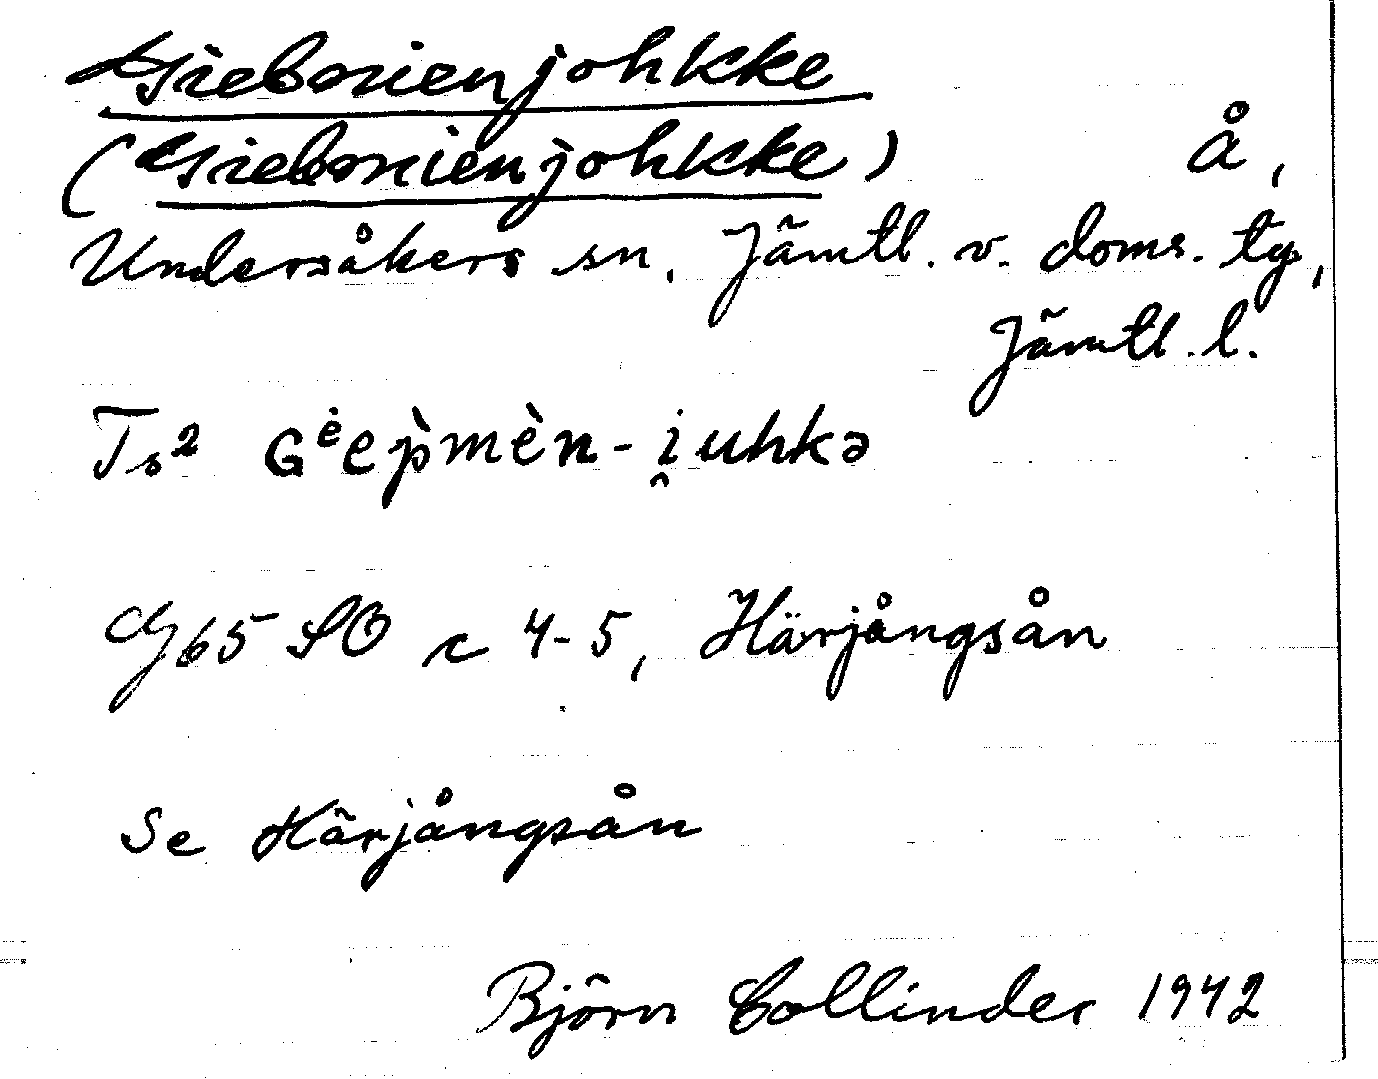 Giebnienjohkke
(Giebmienjohkke) å,
Undersåkers sn, Jämtl. v. doms. tg,
Jämtl. l.
Ts² Gᵉ̇ep̀mèn-i̯uhkə
G65 SO c 4-5, Härjångsån
Se Härjångsån
Björn Collinder 1942